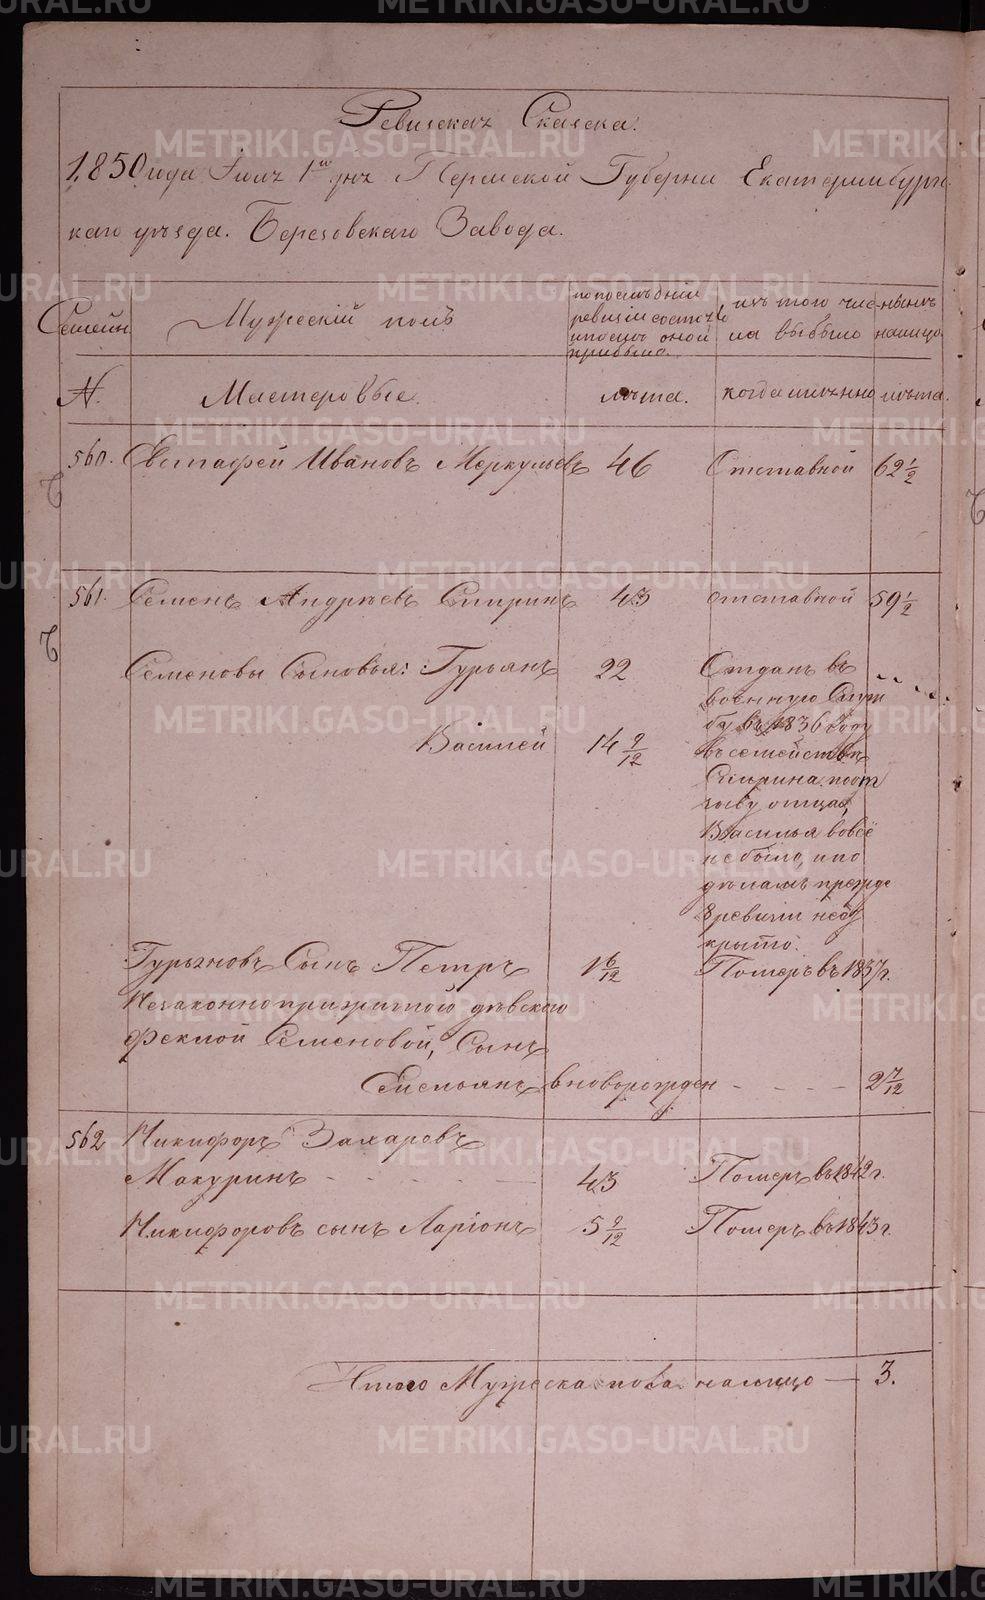 Ревизская Сказка.
1850 года Июля 1го дня Пермской Губернии Екатеринбургс-
каго уѣзда. Березовскаго Завода.
Семейн
Мужескій полъ
по последней
ревизіи состояло
и после оной
прибыло.
изъ того чис
ла выбыло
нынѣ
налицо
N.
Мастеровые.
лѣта.
когда именно
лѣта.
560. Евстафей Ивановъ Меркульевъ 46 Отставной 62 1/2
561. Семенъ Андреевъ Спиринъ 43 отставной 59 1/2
Семеновы Сыновья: Гурьянъ 22 Отданъ въ
военную Служ
бу въ 1836 году
Василей 14 9/12 въ семействѣ
Спирина по от
зыву отца,
Василья вовсе
не было, и по
дѣламъ прежде
й ревизіи неот
крыто.
Гурьяновъ Сынъ Петръ 1 6/12 Померъ въ 1837 г.
Незаконноприжитой дѣвкою
Феклой Семеновой, Сынъ
Емельянъ вноворожден - - - - 2 7/12
562 Никифоръ Захаровъ
Мокуринъ - - - - - 43 Померъ въ 1842 г.
Никифоровъ сынъ Ларіонъ 5 9/12 Померъ въ 1843 г.
Итого Мужеска пола налицо — 3.
METRIKI.GASO-URAL.RU